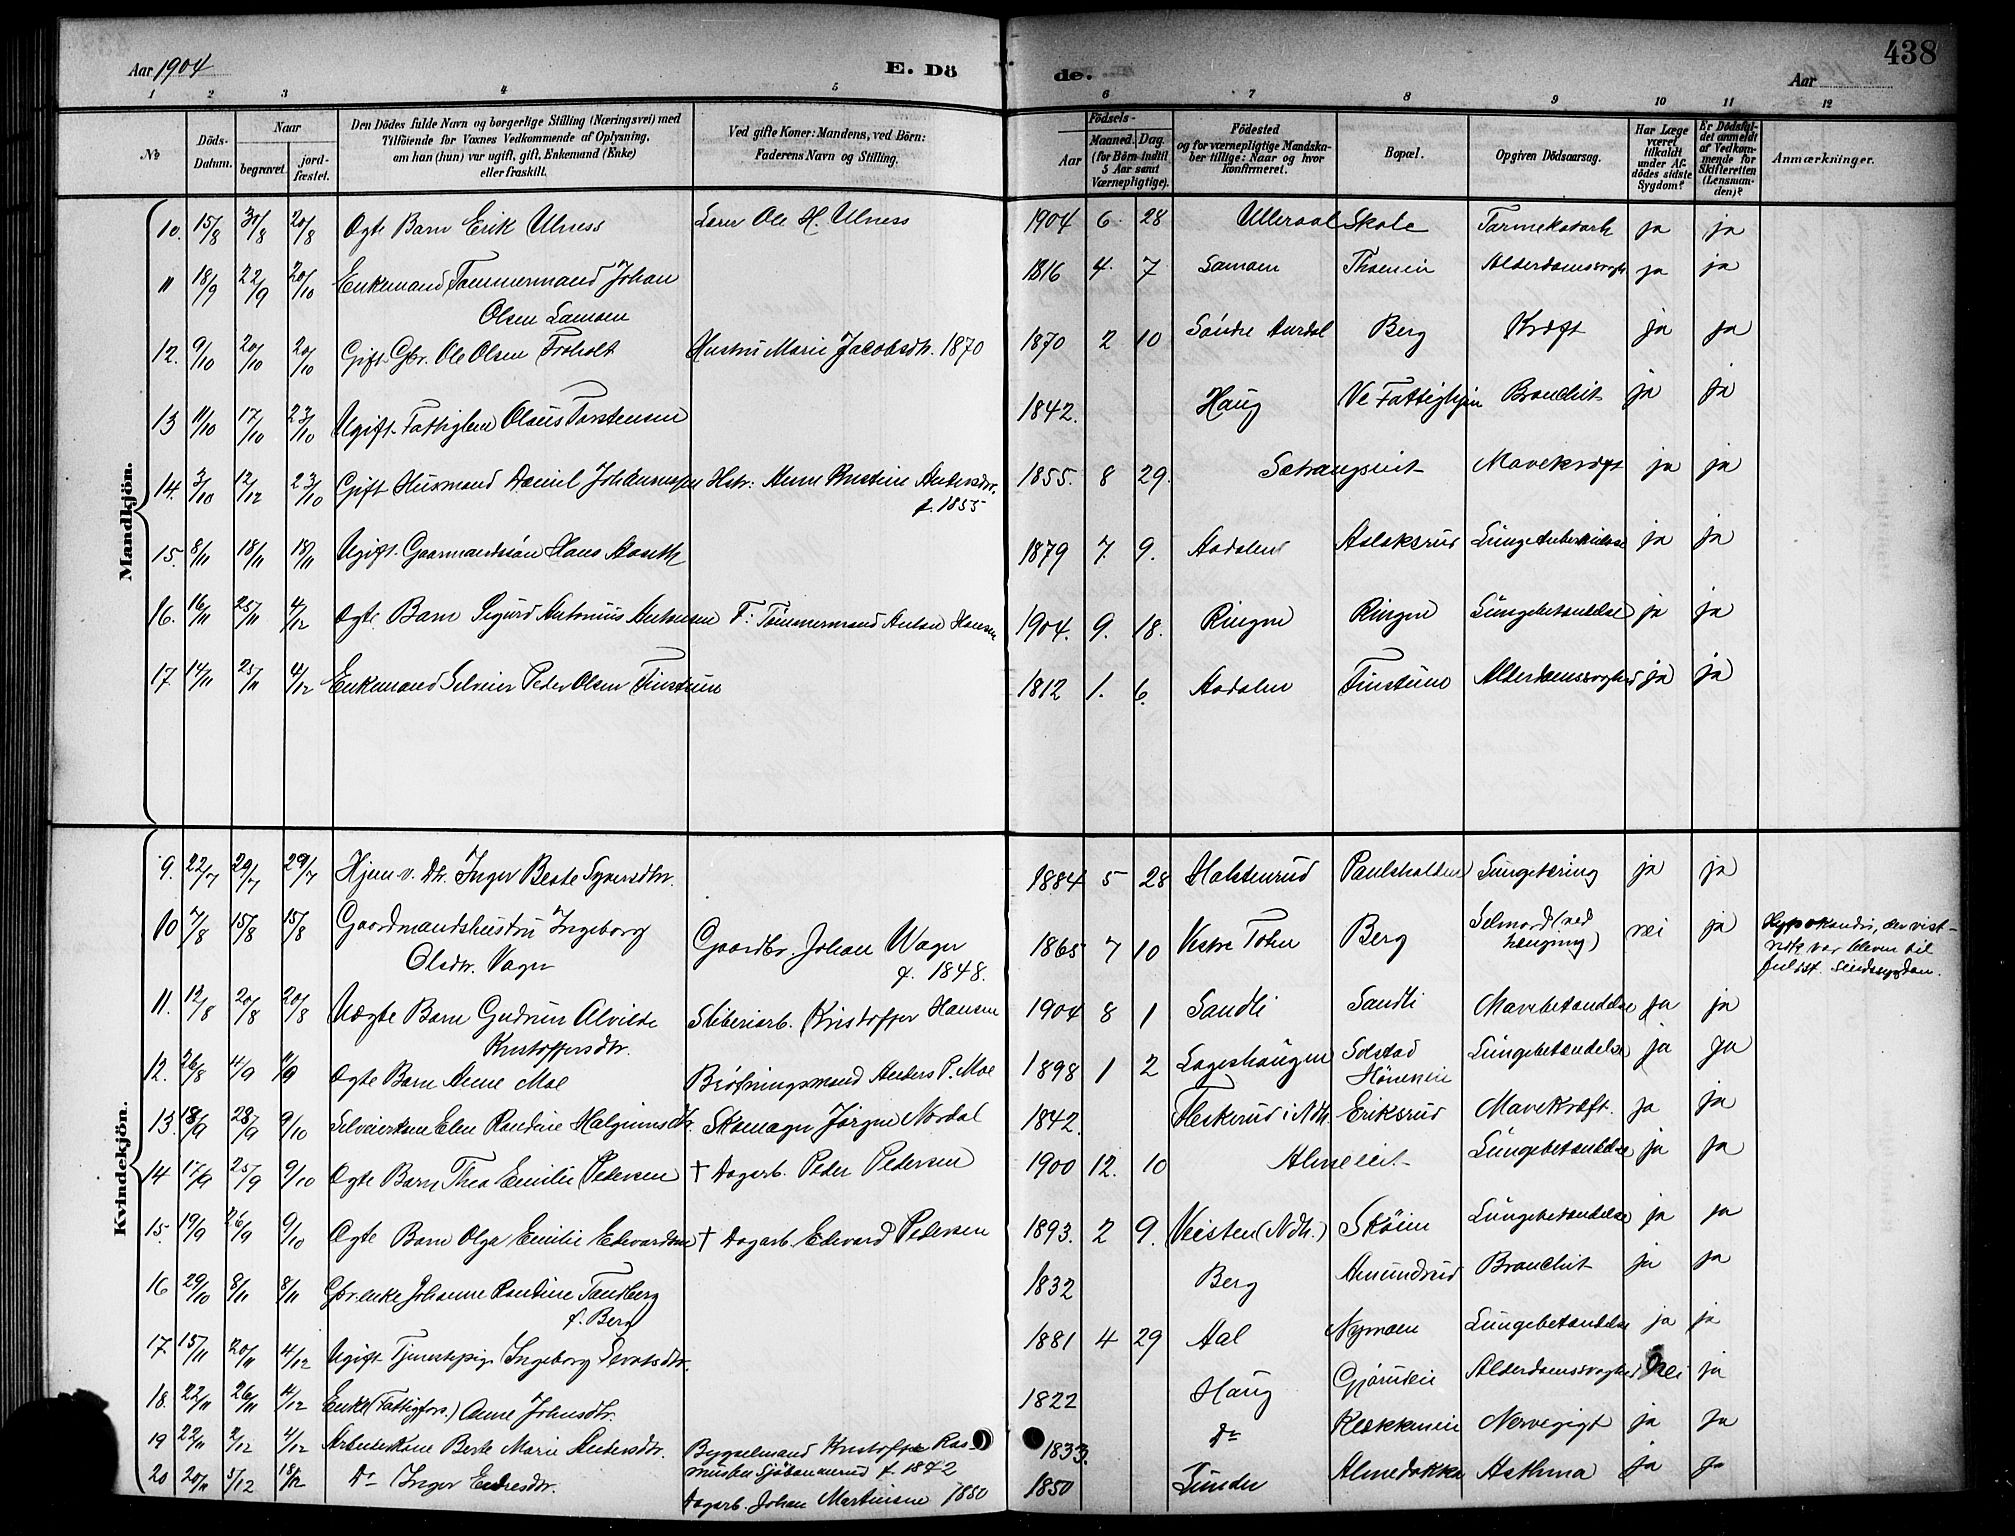 438
Aar 1904
E. Dö
de.
Aar
1 2 3 4 5 6 7 8 9 10 11 12
No
Döds-
Datum.
Naar
begravet.
jord-
fæstet.
Den Dödes fulde Navn og borgerlige Stilling (Næringsvei) med
Tilföiende for Voxnes Vedkommende af Oplysning,
om han (hun) var ugift, gift, Enkemand (Enke)
eller fraskilt.
Ved gifte Koner: Mandens, ved Börn:
Faderens Navn og Stilling.
Födsels-
Aar
Maaned. Dag.
(for Börn indtil
5 Aar samt
Værnepligtige).
Födested
og for værnepligtige Mandska-
ber tillige: Naar og hvor
konfirmeret.
Bopæl.
Opgiven Dödsaarsag.
Har Læge
været
tilkaldt
under Af-
dödes sidste
Sygdom?
Er Dödsfal-
det anmeldt
af Vedkom-
mende for
Skifteretten
(Lensman-
den)?
Anmærkninger.
Mandkjön.
10. 15/8 31/8 20/8 Ægte Barn Erik Ulness Lærer Ole H. Ulness 1904 6. 28 Ulleraal Skole Tarmekatarh ja ja
11 18/9 22/9 20/10 Enkemand Tømmermand Johan 1816 4. 7 Samoen Alderdomssvagh ja ja
Olsen Samoen
12. 9/10 20/10 20/10 Gift Gbr. Ole Olsen Froholt Hustru Marie Jacobsdtr. 1870 1870 2 10 Søndre Aurdal Berg Kræft ja ja
13 11/10 17/10 23/10 Ugift Fattiglem Olaus Torstensen 1842. Haug Ve Fattighjem Bronchit ja ja
14. 3/10 12/12 23/10 Gift Husmand Daniel Johannessen Hstr: Anne Kristine Andersdtr. 1855. 8 29. Setrangseiet Mavekræft ja ja
f. 1855
15. 8/11 18/11 18/11 Ugift Gaarmandssøn Hans Aaseth 1879 7 9. Aadalen Aslaksrud Lungetuberkulose ja ja
16. 16/11 25/11 4/12 Ægte Barn Sigurd Antonius Antonsen F: Tømmermand Anton Hansen 1904. 9. 18. Ringen Ringen Lungebetændelse ja ja
17 14/11 25/11 4/12 Enkemand Selveier Peder Olsen Finstuen 1812 1. 6. Aadalen Finstuen Alderdomssvaghed ja ja
Kvindekjön.
9. 22/7 29/7 29/7 Hjem. v. Dtr. Inger Beate Syversdtr. 1884 5 28 Halstenrud Paulsholdten Lungetæring ja ja
10 7/8 15/8 15/8 Gaardmandshustru Ingeborg Gaardbr. Johan Wager 1865 7 10 Vestre Toten Berg Selmord (ved hængning) nei ja Hypokondri, der vist-
Olsdtr. Vager f. 1848. nok var bleven til
fuldst. Sindssygdom.
11. 12/8 20/8 20/8 Uægte Barn Gudrun Alvilde Sliberiarb. Kristoffer Hansen 1904 8 1 Sandli Sandli Mavebetændelse ja ja
Kristoffersdtr.
12. 26/8 4/9 11/9 Ægte Barn Anne Moe Anders P. Moe 1898 1 2 Lageshaugen Solstad Hønenseie Lungebetændelse ja ja
13. 18/9 28/9 9/10 Selveierkone Elen Randine Halgrimsdtr. Skomager Jørgen Nordal 1842. Heskerud i Ndh. Eriksrud Mavekræft. ja ja
14 17/9 25/9 9/10 Ægte Barn Thea Emilie Pedersen † Dagarb. Peder Pedersen 1900 12. 10 Almeeiet Lungebetændelse ja ja
15. 19/9 26/9 9/10 Ægte Barn Olga Emilie Edvardsen † Dagarb. Edvard Pedersen 1893. 2 9. Veisten (Ndh.) Skøien Lungebetændelse ja ja
16 29/10 8/11 8/11 Gbr.enke Johanne Randine Tandberg 1832 Berg Amundrud Bronchit ja ja
f. Berg
17 15/11 20/11 4/12 Ugift Tjenestepige Ingeborg 1881 4 29 Aal Nymoen Lungebetændelse ja ja
18. 22/11 26/11 4/12 Enke (Fattigfors.) Anne Johnsdtr. 1822 Haug Alderdomssvaghed nei ja
19 22/11 2/12 4/12 Arbeiderkone Berte Marie Andersdtr. Bygselmand Kristoffer Ras- 1833. Do Klækkeneie Nervegigt ja ja
mussen f. 1842
20 20/11 5/12 18/12 Do Inger Endresdtr. Dagarb. Johan Martinsen 1850 1850 Lunder Almedokka Asthma ja ja